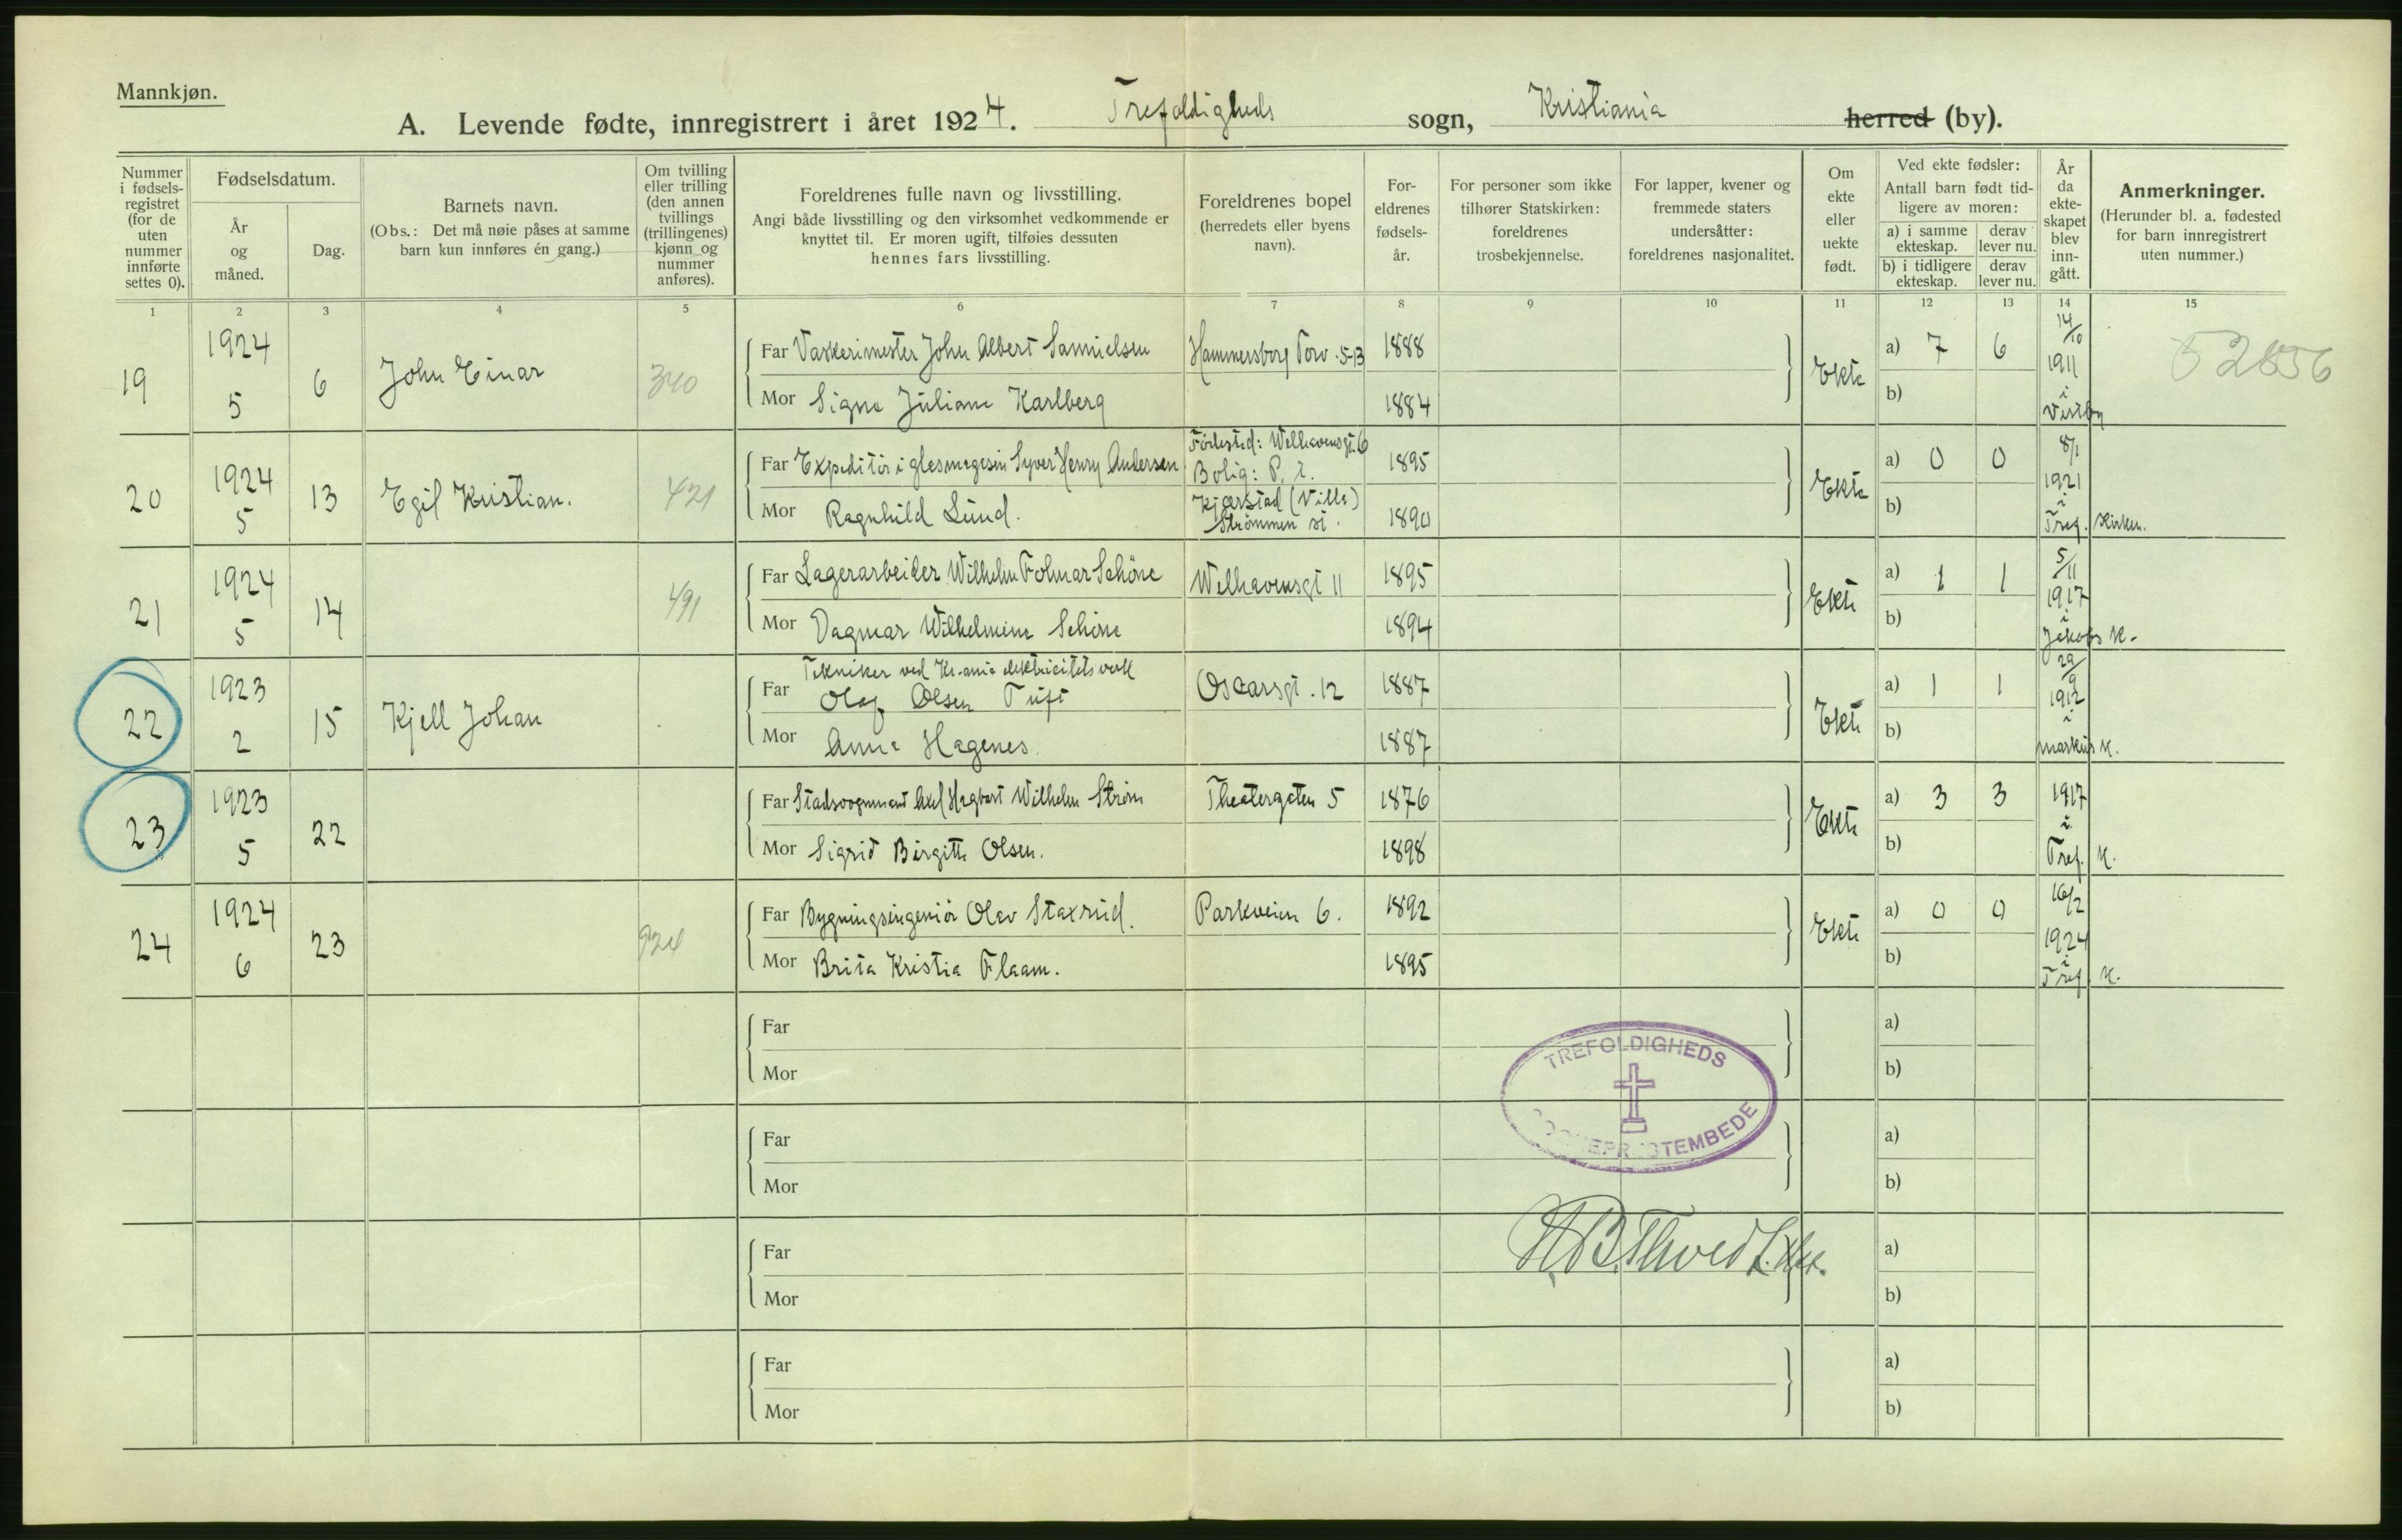 Mannkjøn.
A. Levende fødte, innregistrert i året 1924. Trefoldigheds sogn, Kristiania herred (by).
Nummer i fødsels-registret (for de uten nummer innførte settes 0).
Fødselsdatum.
År og måned.
Dag.
Barnets navn.
(Obs.: Det må nøie påses at samme barn kun innføres én gang.)
Om tvilling eller trilling (den annen tvillings (trillingenes) kjønn og nummer anføres).
Foreldrenes fulle navn og livsstilling.
Angi både livsstilling og den virksomhet vedkommende er knyttet til. Er moren ugift, tilføies dessuten hennes fars livsstilling.
Foreldrenes bopel
(herredets eller byens navn).
For-eldrenes fødsels-år.
For personer som ikke tilhører Statskirken: foreldrenes trosbekjennelse.
For lapper, kvener og fremmede staters undersåtter: foreldrenes nasjonalitet.
Om ekte eller uekte født.
Ved ekte fødsler:
Antall barn født tid-ligere av moren:
a) i samme ekteskap.
derav lever nu.
b) i tidligere ekteskap.
derav lever nu.
År da ekte-skapet blev inn-gått.
Anmerkninger.
(Herunder bl. a. fødested for barn innregistrert uten nummer.)
1 2 3 4 5 6 7 8 9 10 11 12 13 14 15
19 1924 5 6 John Einar 340
Far Vaskerimester John Albert Samuelsen Hammersborg Torv. 5-13 1888
Mor Signe Juliane Karlberg 1884
Ekte a) 7 6 b) 14/10 1911 i Vestby 52856
20 1924 5 13 Egil Kristian. 421
Far Expeditör i glasmagasin Syver Henry Andersen 1895
Mor Ragnhild Lund. 1890
Födested: Welhavensgt. 6
Bolig: P. t.
Kjærstad (Villa)
Strömmen st.
Ekte a) 0 0 b) 8/1 1921 i Tref. Kirken.
21 1924 5 14 491
Far Lagerarbeider Wilhelm Folmar Schöne Welhavensgt 11 1895
Mor Dagmar Wilhelmine Schöne 1894
Ekte a) 1 1 b) 5/11 1917 i Jakobs K.
22 1923 2 15 Kjell Johan
Tekniker ved Kr.ania elektricitetsverk
Far Olaf Olsen Tuft Oscarsgt. 12 1887
Mor Anna Hagenes. 1887
Ekte a) 1 1 b) 29/9 1912 i Markus K.
23 1923 5 22
Far Stadsvognmand Axel Hagbart Wilhelm Ström Theatergaten 5 1876
Mor Sigrid Birgitte Olsen. 1898
Ekte a) 3 3 b) 1917 i Tref. K.
24 1924 6 23 924
Far Bygningsingeniör Olav Staxrud. Parkveien 6. 1892
Mor Brita Kristia Flaam. 1895
Ekte a) 0 0 b) 16/2 1924 i Tref. K.
Far a)
Mor b)
TREFOLDIGHEDS
Far a)
Mor b)
Far a)
Mor b)
Far a)
Mor b)